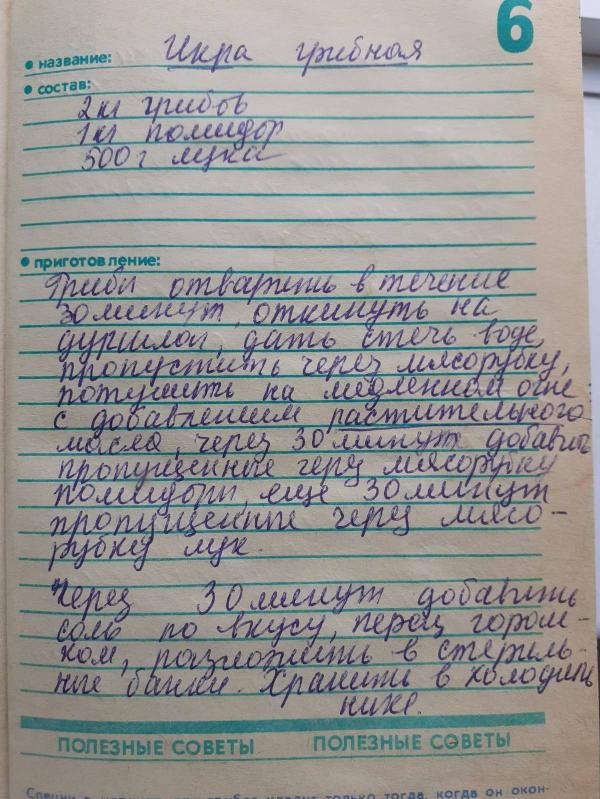 6
• название: Икра грибная
• состав:
2 кг грибов
1 кг помидор
500 г лука
• приготовление:
Грибы отварить в течение
30 минут, откинуть на
дуршлаг, дать стечь воде,
пропустить через мясорубку,
потушить на медленном огне
с добавлением растительного
масла, через 30 минут добавить
пропущенные через мясорубку
помидоры, еще 30 минут
пропущенные через мясо-
рубку лук.
Через 30 минут добавить
соль по вкусу, перец горош-
ком, разложить в стериль-
ные банки. Хранить в холодиль
нике.
ПОЛЕЗНЫЕ СОВЕТЫ ПОЛЕЗНЫЕ СОВЕТЫ
только тогда, когда он окон-